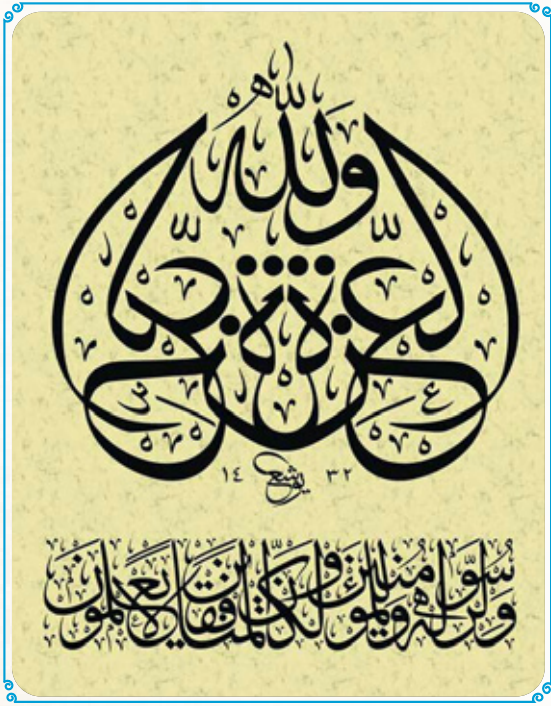 ولله
العزة
١٤ ٣٢
ولرسوله وللمؤمنين ولكن المنافقين لا يعلمون